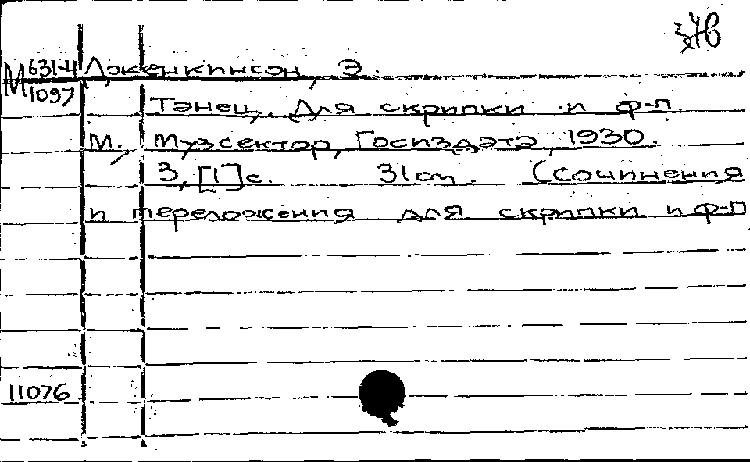 М 631-4 Дженкинсон, Э.
1097
Танец. Для скрипки и ф-п.
М., Музсектор, Госиздата, 1930.
3, [1] с. 31 cm. (Сочинения
и переложения для скрипки и ф-п
11076